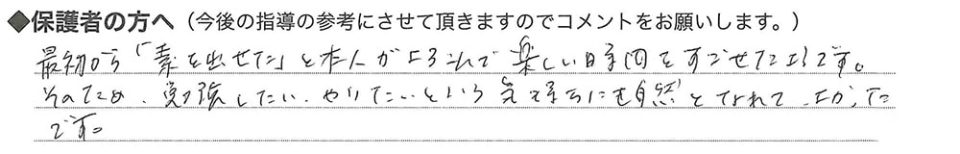 ◆保護者の方へ（今後の指導の参考にさせて頂きますのでコメントをお願いします。）
最初から「素を出せた」と本人がよろこんで楽しい時間をすごせたようです。
そのため、勉強したい、やりたいという気持ちにも自然となれて、よかった
です。